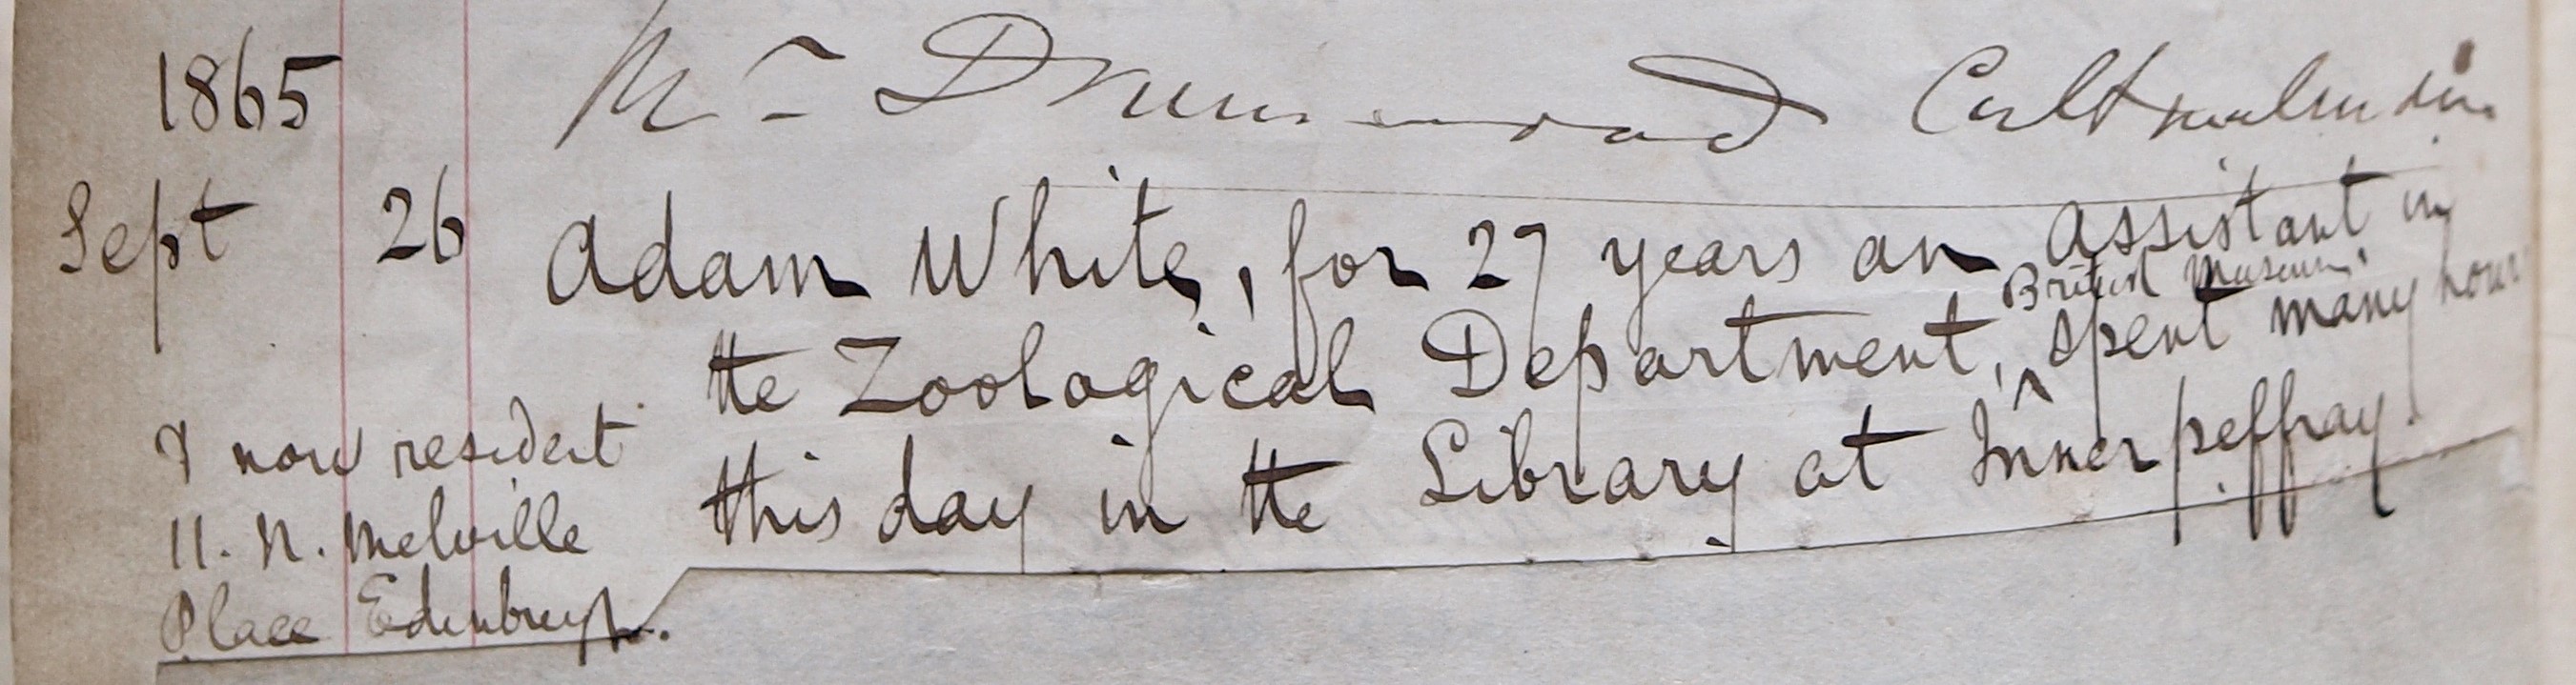 1865
Mr Drummond Cultmalindie
Sept 26 Adam White, for 27 years an Assistant in
the Zoological Department, ^ British Museum. spent many hours
this day in the Library at Innerpeffray.
& now resident
11. N. Melville
Place Edinburgh.